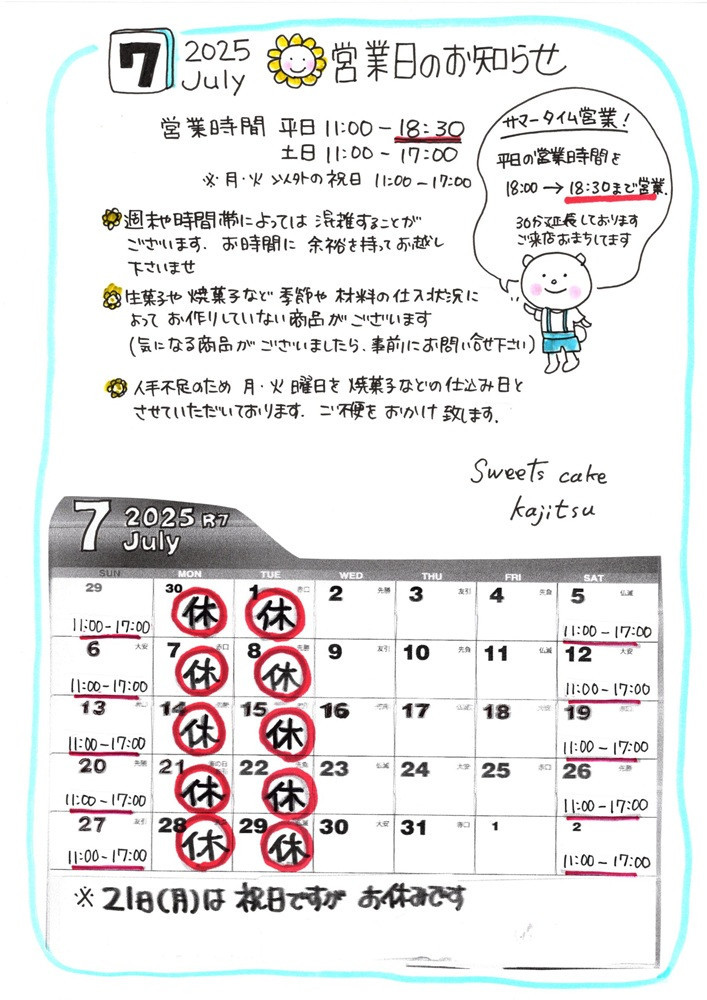 7 2025 July 営業日のお知らせ
営業時間 平日 11:00-18:30
土日 11:00-17:00
※月・火 以外の祝日 11:00-17:00
サマータイム営業!
平日の営業時間を
18:00→18:30まで営業.
30分延長しております
ご来店おまちしてます
週末や時間帯によっては 混雑することが
ございます. お時間に 余裕を持ってお越し
下さいませ
生菓子や 焼菓子など 季節や 材料の仕入状況に
よって お作りしていない商品がございます
(気になる商品が ございましたら、事前にお問い合せ下さい)
人手不足のため 月・火曜日を 焼菓子などの仕込み日と
させていただいております. ご不便を おかけ 致します.
Sweets cake
kajitsu
7 2025 R7
July
SUN MON TUE WED THU FRI SAT
29 30 1 赤口 2 先勝 3 友引 4 先負 5 仏滅
11:00-17:00 休 休 11:00-17:00
6 大安 7 赤口 8 先勝 9 友引 10 先負 11 仏滅 12 大安
11:00-17:00 休 休 11:00-17:00
13 赤口 14 15 16 17 18 19 赤口
11:00-17:00 休 休 11:00-17:00
20 先勝 21 海の日 22 先負 23 仏滅 24 大安 25 赤口 26 先勝
11:00-17:00 休 休 11:00-17:00
27 友引 28 29 30 大安 31 赤口 1 2
11:00-17:00 休 休 11:00-17:00
※ 21日(月)は 祝日ですが お休みです